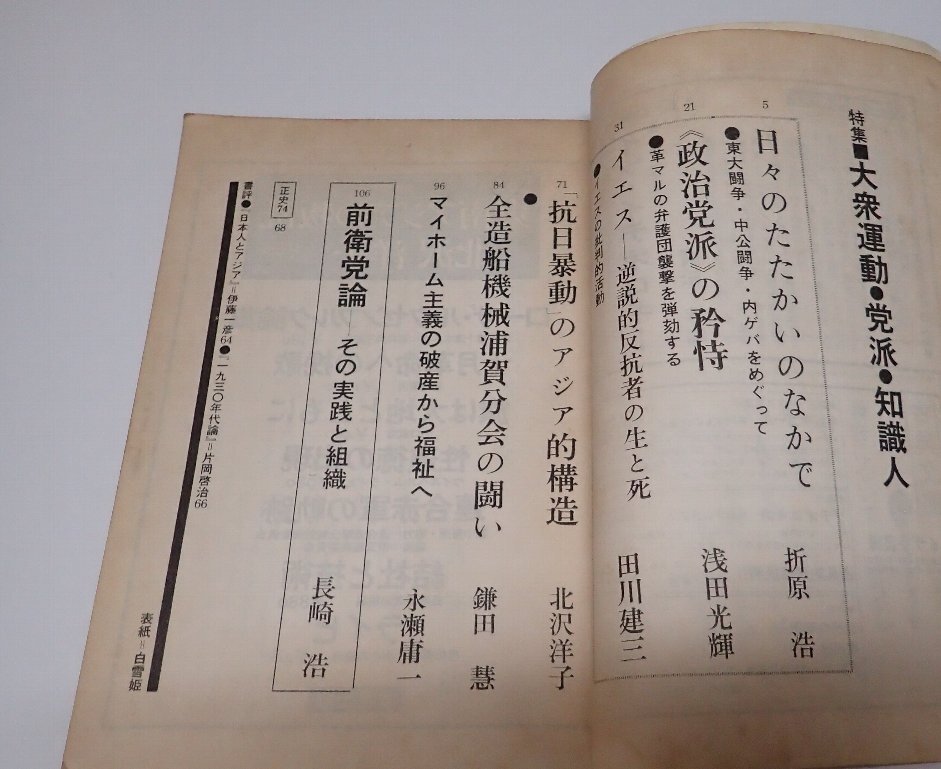 特集■大衆運動●党派●知識人
5 日々のたたかいのなかで 折原 浩
●東大闘争・中公闘争・内ゲバをめぐって
21 《政治党派》の矜恃 浅田光輝
●革マルの弁護団襲撃を弾劾する
31 イエス―逆説的反抗者の生と死 田川建三
●イエスの批判的活動
71 「抗日暴動」のアジア的構造 北沢洋子
84 ●全造船機械浦賀分会の闘い 鎌田 慧
96 マイホーム主義の破産から福祉へ 永瀬庸一
106 前衛党論 その実践と組織 長崎 浩
正史74 68
書評●『日本人とアジア』=伊藤一彦64●『一九三〇年代論』=片岡啓治66
表紙=白雪姫